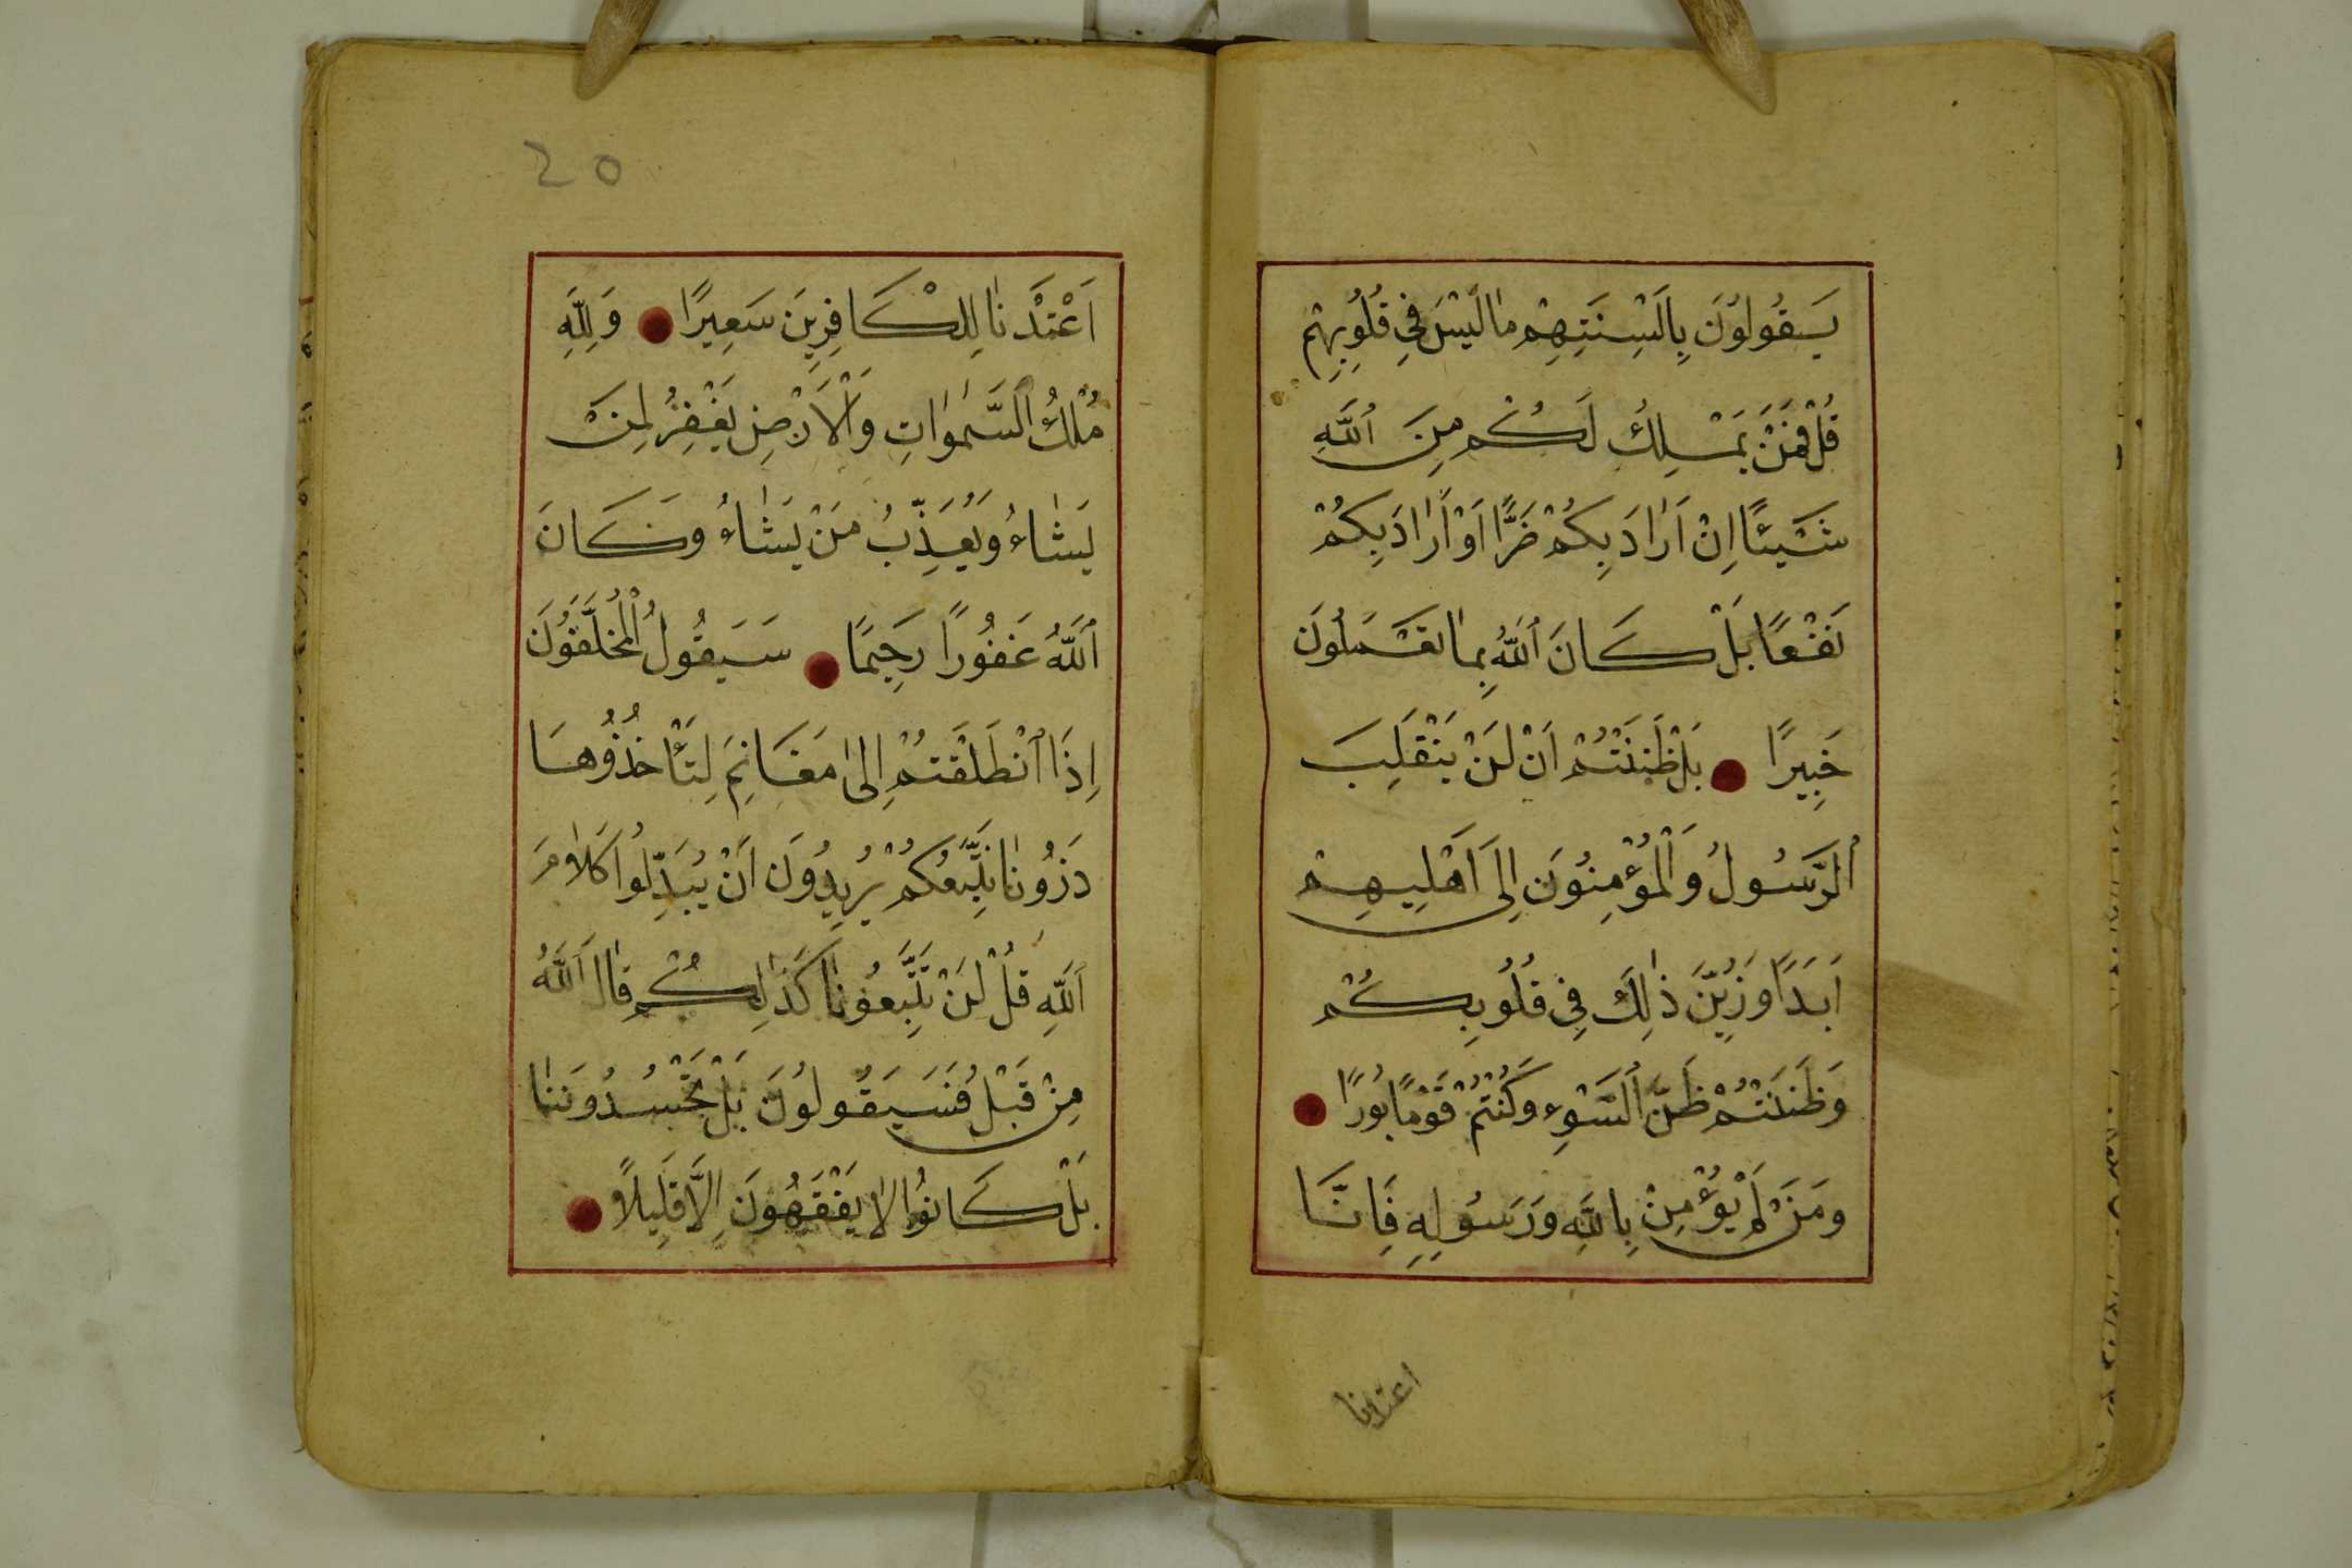 يَقُولُوْنَ بِاَلْسِنَتِهِمْ مٰا لَيْسَ فِي قُلُوبِهِمْ
قُلْ فَمَنْ يَمْلِكُ لَكُمْ مِنَ ٱللَّهِ
شَيْئًا اِنْ اَرٰادَ بِكُمْ ضَرًّا اَوْ اَرٰادَ بِكُمْ
نَفْعًا بَلْ كَانَ ٱللَّهُ بِمٰا تَعْمَلُونَ
خَبِيرًا ● بَلْ ظَنَنْتُمْ اَنْ لَنْ يَنْقَلِبَ
ٱلرَّسُولُ وَالْمُؤْمِنُوَنَ اِلىَ اَهْلِيهِمْ
اَبَدًا وَزُيِّنَ ذٰلِكَ فِي قُلُوبِكُمْ
وَظَنَنْتُمْ ظَنَّ ٱلسَّوْءِ وَكُنْتُمْ قَوْمًا بُورًا ●
وَمَنْ لَمْ يُؤْمِنْ بِاللَّهِ وَرَسُولِهِ فَاِنَّا
اعتدنا
20
اَعْتَدْنٰا لِلْكَافِرِينَ سَعِيرًا ● وَلِلَّهِ
مُلْكُ ٱلسَّمٰوٰاتِ وَالْاَرْضِ يَغْفِرُ لِمَنْ
يَشٰاءُ وَيُعَذِّبُ مَنْ يَشٰاءُ وَكَانَ
ٱللَّهُ غَفُورًا رَحِيمًا ● سَيَقُولُ الْمُخَلَّفُونَ
اِذَا ٱنْطَلَقْتُمْ اِلىٰ مَغَانِمَ لِتَأْخُذُوُهَا
ذَرُونٰا نَتَّبِعْكُمْ يُرِيدُونَ اَنْ يُبَدِّلُوا كَلٰامَ
ٱللَّهِ قُلْ لَنْ تَتَّبِعُونٰا كَذٰلِكُمْ قٰالَ ٱللَّهُ
مِنْ قَبْلُ فَسَيَقُولُوْنَ بَلْ تَحْسُدُونَنٰا
بَلْ كَانُوا لٰا يَفْقَهُونَ اِلَّا قَلِيلًا ●